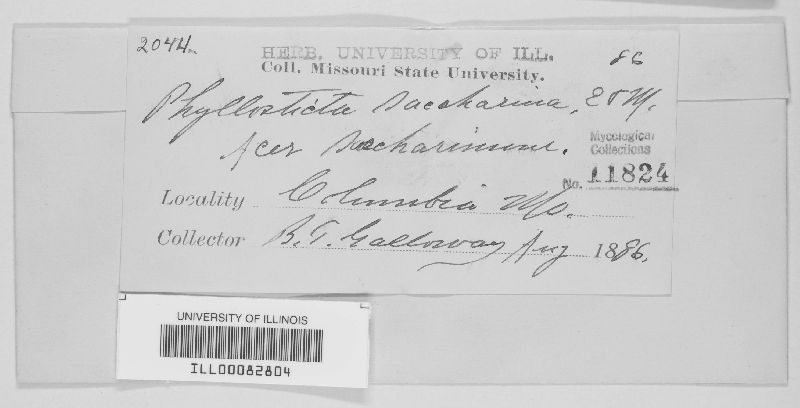 2044.
HERB. UNIVERSITY OF ILL. 86
Coll. Missouri State University.
Phyllosticta saccharina, E & M.
Acer saccharinum.
Mycological
Collections
No. 11824
Locality Columbia Mo.
Collector B. T. Galloway Aug 1886.
UNIVERSITY OF ILLINOIS
ILL00082804